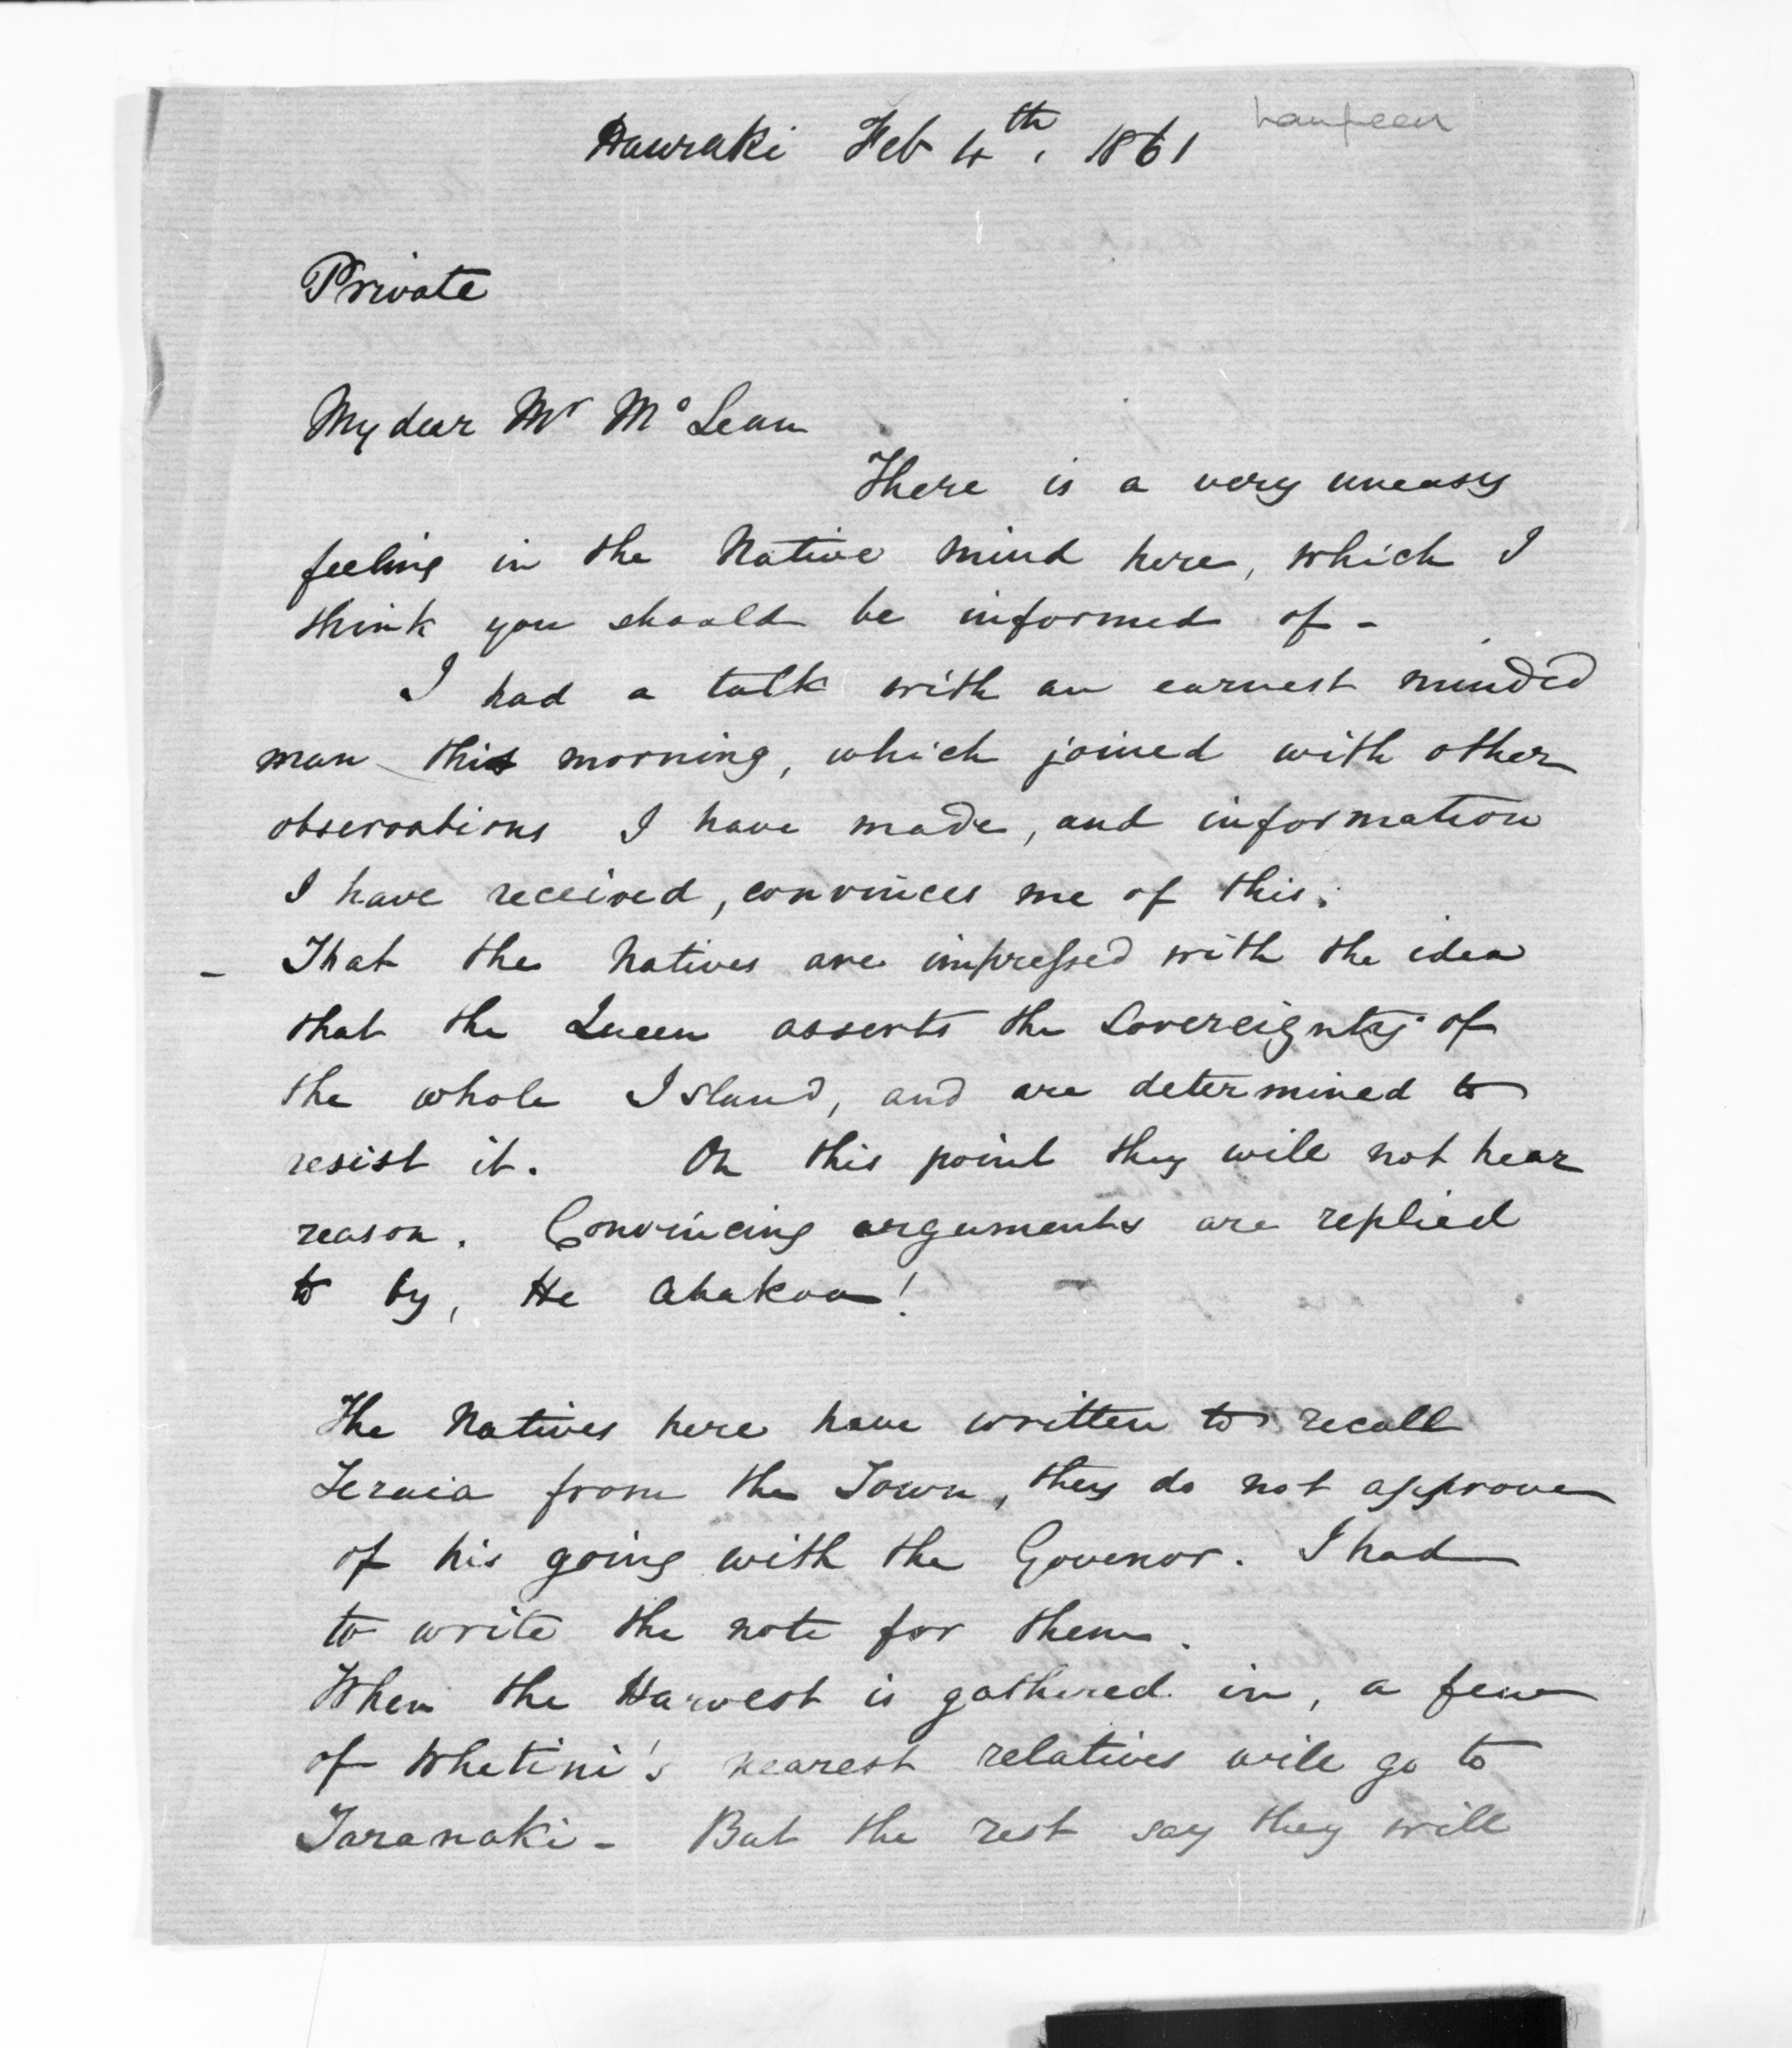 Hauraki Feb 4th, 1861
Private
My dear Mr McLean
There is a very uneasy
feeling in the Native mind here, which I
think you should be informed of -
I had a talk with an earnest minded
man this morning, which joined with other
observations I have made, and information
I have received, convinces me of this.
- That the Natives are impressed with the idea
that the Queen asserts the Sovereignty of
the whole Island, and are determined to
resist it. On this point they will not hear
reason. Convincing arguments are replied
to by, He ahakoa!
The Natives here have written to recall
Teruia from the Town, they do not approve
of his going with the Govenor. I had
to write the note for them.
When the Harvest is gathered in, a few
of Whetini's nearest relatives will go to
Taranaki - But the rest say they will